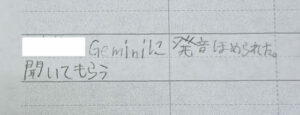 Geminiに発音ほめられた。
聞いてもらう